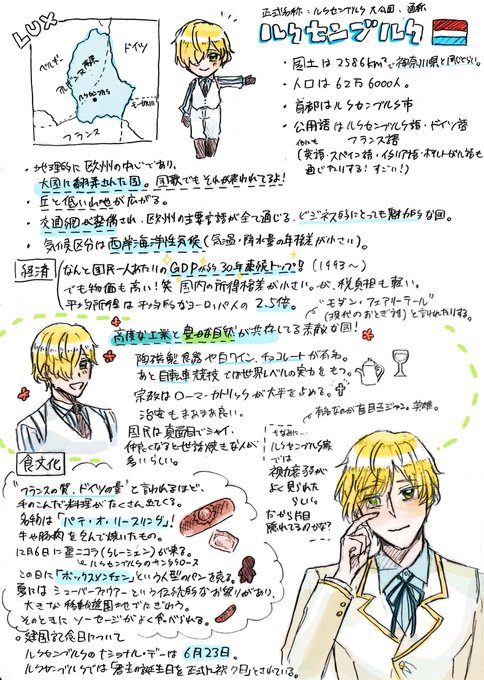 LUX
正式名称:ルクセンブルク大公国、通称
ルクセンブルク
ドイツ
ベルギー
ルクセンブルク
フランス
・国土は2586km²で神奈川県と同じくらい。
・人口は62万6000人。
・首都はルクセンブルク市
・公用語はルクセンブルク語・ドイツ語
フランス語
(英語・スペイン語・イタリア語・ポルトガル語も
通じたりする!すごい!)
・地理的に欧州の中心であり、
大国に翻弄された国。国歌でもそれが表われてるよ!
・丘と低い山地が広がる。
・交通網が整備され、欧州の主要言語が全て通じる、ビジネス的にとっても魅力的な国。
・気候区分は西岸海洋性気候(気温・降水量の年較差が小さい)。
経済
なんと国民一人あたりのGDPが約30年連続トップ!!(1993〜)
でも物価も高い!笑 国内の所得格差が小さい。が、税負担も軽い。
平均所得は平均的なヨーロッパ人の2.5倍。
"モダン・フェアリーテール"
(現代のおとぎ話)と言われたりする。
高度な工業と豊かな自然が共存してる素敵な国!
陶磁製食器や白ワイン、チョコレートが有名。
あと自転車競技では世界レベルの実力をもつ。
宗教はローマ・カトリックが大半を占める。
治安もまあまあ良い。
国民は真面目でシャイ。
仲良くなると世話焼きな人が
多いらしい。
ちなみに…
ルクセンブルク家
では
視力
がよく見られた
らしい。
だから片目
隠れてるのかな?
食文化
"フランスの質、ドイツの量"と言われるほど、
手のこんだ料理がたくさん出てくる。
名物は「パテ・オ・リースリング」!
牛や豚肉を包んで焼いたもの。
12月6日に聖ニコラ(クレーシェン)が来る。
↳ルクセンブルクのサンタクロース
この日に「ボックスメンチェン」という人型のパンを売る。
夏にはシューバーファウアーという伝統的なお祭りがあり、
大きな移動遊園地でにぎわう。
そのときにソーセージがよく食べられる。
○建国記念日について
ルクセンブルクのナショナル・デーは6月23日。
ルクセンブルクでは「君主の誕生日を正式に祝う日」とされている。